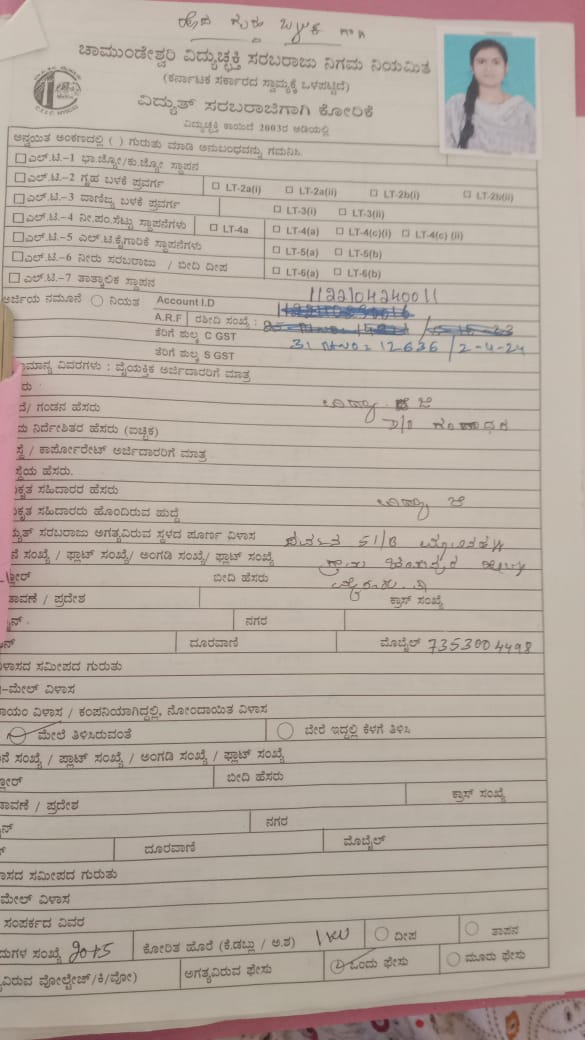 ಚಾಮುಂಡೇಶ್ವರಿ ವಿದ್ಯುಚ್ಛಕ್ತಿ ಸರಬರಾಜು ನಿಗಮ ನಿಯಮಿತ
(ಕರ್ನಾಟಕ ಸರ್ಕಾರದ ಸ್ವಾಮ್ಯಕ್ಕೆ ಒಳಪಟ್ಟಿದೆ)
ವಿದ್ಯುತ್ ಸರಬರಾಜಿಗಾಗಿ ಕೋರಿಕೆ
ವಿದ್ಯುಚ್ಛಕ್ತಿ ಕಾಯಿದೆ 2003ರ ಅಡಿಯಲ್ಲಿ
ಅನ್ವಯಿತ ಅಂಕಣದಲ್ಲಿ ( ) ಗುರುತು ಮಾಡಿ ಅನುಬಂಧವನ್ನು ಗಮನಿಸಿ
ಎಲ್.ಟಿ.-1 ಭಾ.ಜ್ಯೋ/ಕು.ಜ್ಯೋ ಸ್ಥಾಪನ
ಎಲ್.ಟಿ.-2 ಗೃಹ ಬಳಕೆ ಪ್ರವರ್ಗ LT-2a(i) LT-2a(ii) LT-2b(i) LT-2b(ii)
ಎಲ್.ಟಿ.-3 ವಾಣಿಜ್ಯ ಬಳಕೆ ಪ್ರವರ್ಗ LT-3(i) LT-3(ii)
ಎಲ್.ಟಿ.-4 ನೀ.ಪಂ.ಸೆಟ್ಟು ಸ್ಥಾಪನೆಗಳು LT-4a LT-4(a) LT-4(c)(i) LT-4(c) (ii)
ಎಲ್.ಟಿ.-5 ಎಲ್.ಟಿ.ಕೈಗಾರಿಕೆ ಸ್ಥಾಪನೆಗಳು LT-5(a) LT-5(b)
ಎಲ್.ಟಿ.-6 ನೀರು ಸರಬರಾಜು / ಬೀದಿ ದೀಪ LT-6(a) LT-6(b)
ಎಲ್.ಟಿ.-7 ತಾತ್ಕಾಲಿಕ ಸ್ಥಾಪನ
ಅರ್ಜಿಯ ನಮೂನೆ ನಿಯತ Account I.D 1122104240011
A.R.F ರಶೀದಿ ಸಂಖ್ಯೆ :
ತೆರಿಗೆ ಶುಲ್ಕ C GST 12636 / 2-4-24
ತೆರಿಗೆ ಶುಲ್ಕ S GST
ಾಮಾನ್ಯ ವಿವರಗಳು : ವೈಯಕ್ತಿಕ ಅರ್ಜಿದಾರರಿಗೆ ಮಾತ್ರ
ರು
ದೆ/ ಗಂಡನ ಹೆಸರು
ಮ ನಿರ್ದೇಶಿತರ ಹೆಸರು (ಐಚ್ಛಿಕ) D/o
ಸ್ಥೆ / ಕಾರ್ಪೊರೇಟ್ ಅರ್ಜಿದಾರರಿಗೆ ಮಾತ್ರ
ಸ್ಥೆಯ ಹೆಸರು.
ಕೃತ ಸಹಿದಾರರ ಹೆಸರು
ಕೃತ ಸಹಿದಾರರು ಹೊಂದಿರುವ ಹುದ್ದೆ
ದ್ಯುತ್ ಸರಬರಾಜು ಅಗತ್ಯವಿರುವ ಸ್ಥಳದ ಪೂರ್ಣ ವಿಳಾಸ
ನೆ ಸಂಖ್ಯೆ / ಫ್ಲಾಟ್ ಸಂಖ್ಯೆ/ ಅಂಗಡಿ ಸಂಖ್ಯೆ/ ಫ್ಲಾಟ್ ಸಂಖ್ಯೆ
ಲೋರ್ ಬೀದಿ ಹೆಸರು
ತಾವಣೆ / ಪ್ರದೇಶ ಕ್ರಾಸ್ ಸಂಖ್ಯೆ
ನ್ ನಗರ
ನ್ ದೂರವಾಣಿ ಮೊಬೈಲ್ 7353004498
ಳಾಸದ ಸಮೀಪದ ಗುರುತು
-ಮೇಲ್ ವಿಳಾಸ
ಾಯಂ ವಿಳಾಸ / ಕಂಪನಿಯಾಗಿದ್ದಲ್ಲಿ, ನೋಂದಾಯಿತ ವಿಳಾಸ
ಮೇಲೆ ತಿಳಿಸಿರುವಂತೆ ಬೇರೆ ಇದ್ದಲ್ಲಿ ಕೆಳಗೆ ತಿಳಿಸಿ
ನೆ ಸಂಖ್ಯೆ / ಪ್ಲಾಟ್ ಸಂಖ್ಯೆ / ಅಂಗಡಿ ಸಂಖ್ಯೆ / ಫ್ಲಾಟ್ ಸಂಖ್ಯೆ
ಲೋರ್ ಬೀದಿ ಹೆಸರು
ತಾವಣೆ / ಪ್ರದೇಶ ಕ್ರಾಸ್ ಸಂಖ್ಯೆ
ನ್ ನಗರ
ದೂರವಾಣಿ ಮೊಬೈಲ್
ಾಸದ ಸಮೀಪದ ಗುರುತು
ಮೇಲ್ ವಿಳಾಸ
ಸಂಪರ್ಕದ ವಿವರ
ದುಗಳ ಸಂಖ್ಯೆ ಕೋರಿತ ಹೊರೆ (ಕೆ.ಡಬ್ಲು / ಅ.ಶ) 1KW ದೀಪ ತಾಪನ
್ಯವಿರುವ ವೋಲ್ಟೇಜ್/ಕಿ/ವೋ) ಅಗತ್ಯವಿರುವ ಫೇಸು ಒಂದು ಫೇಸು ಮೂರು ಫೇಸು